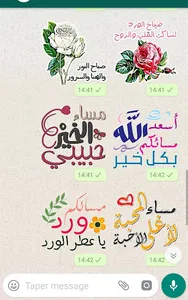 صباح الورد
لساكن القلب والروح
صباح النور
والهنا والسرور
14:41
14:41
مساء
الخير
حبيبي
أسعد الله
مسائكم
بكل خير
14:41
14:42
مسائك
ورد
يا عطر الورد
مساء المحبة
لأغلى
الأحبة
14:42
14:42
Taper message